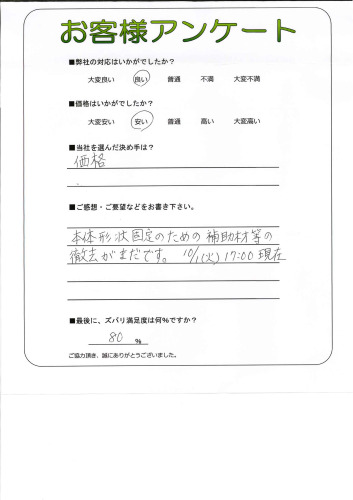 お客様アンケート
■弊社の対応はいかがでしたか?
大変良い 良い 普通 不満 大変不満
■価格はいかがでしたか?
大変安い 安い 普通 高い 大変高い
■当社を選んだ決め手は?
価格
■ご感想・ご要望などをお書き下さい。
本体形状固定のための補助材等の
撤去がまだです。 10/1(火) 17:00 現在
■最後に、ズバリ満足度は何%ですか?
80 %
ご協力頂き、誠にありがとうございました。